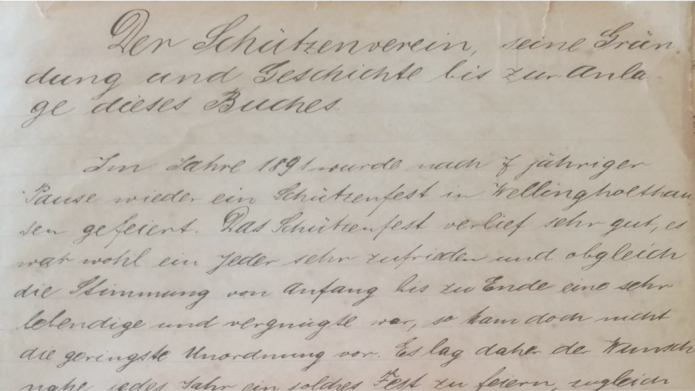 Der Schützenverein, seine Grün-
dung und Geschichte bis zur Anla-
ge dieses Buches.
Im Jahre 1891 wurde nach 7 jähriger
Pause wieder ein Schützenfest in Wellingholthau
sen gefeiert. Das Schützenfest verlief sehr gut, es
war wohl ein jeder sehr zufrieden und obgleich
die Stimmung von Anfang bis zu Ende eine sehr
lebendige und vergnügte war, so kam doch nicht
die geringste Unordnung vor. Es lag daher der Wunsch
nahe jedes Jahr ein solches Fest zu feiern, zugleich